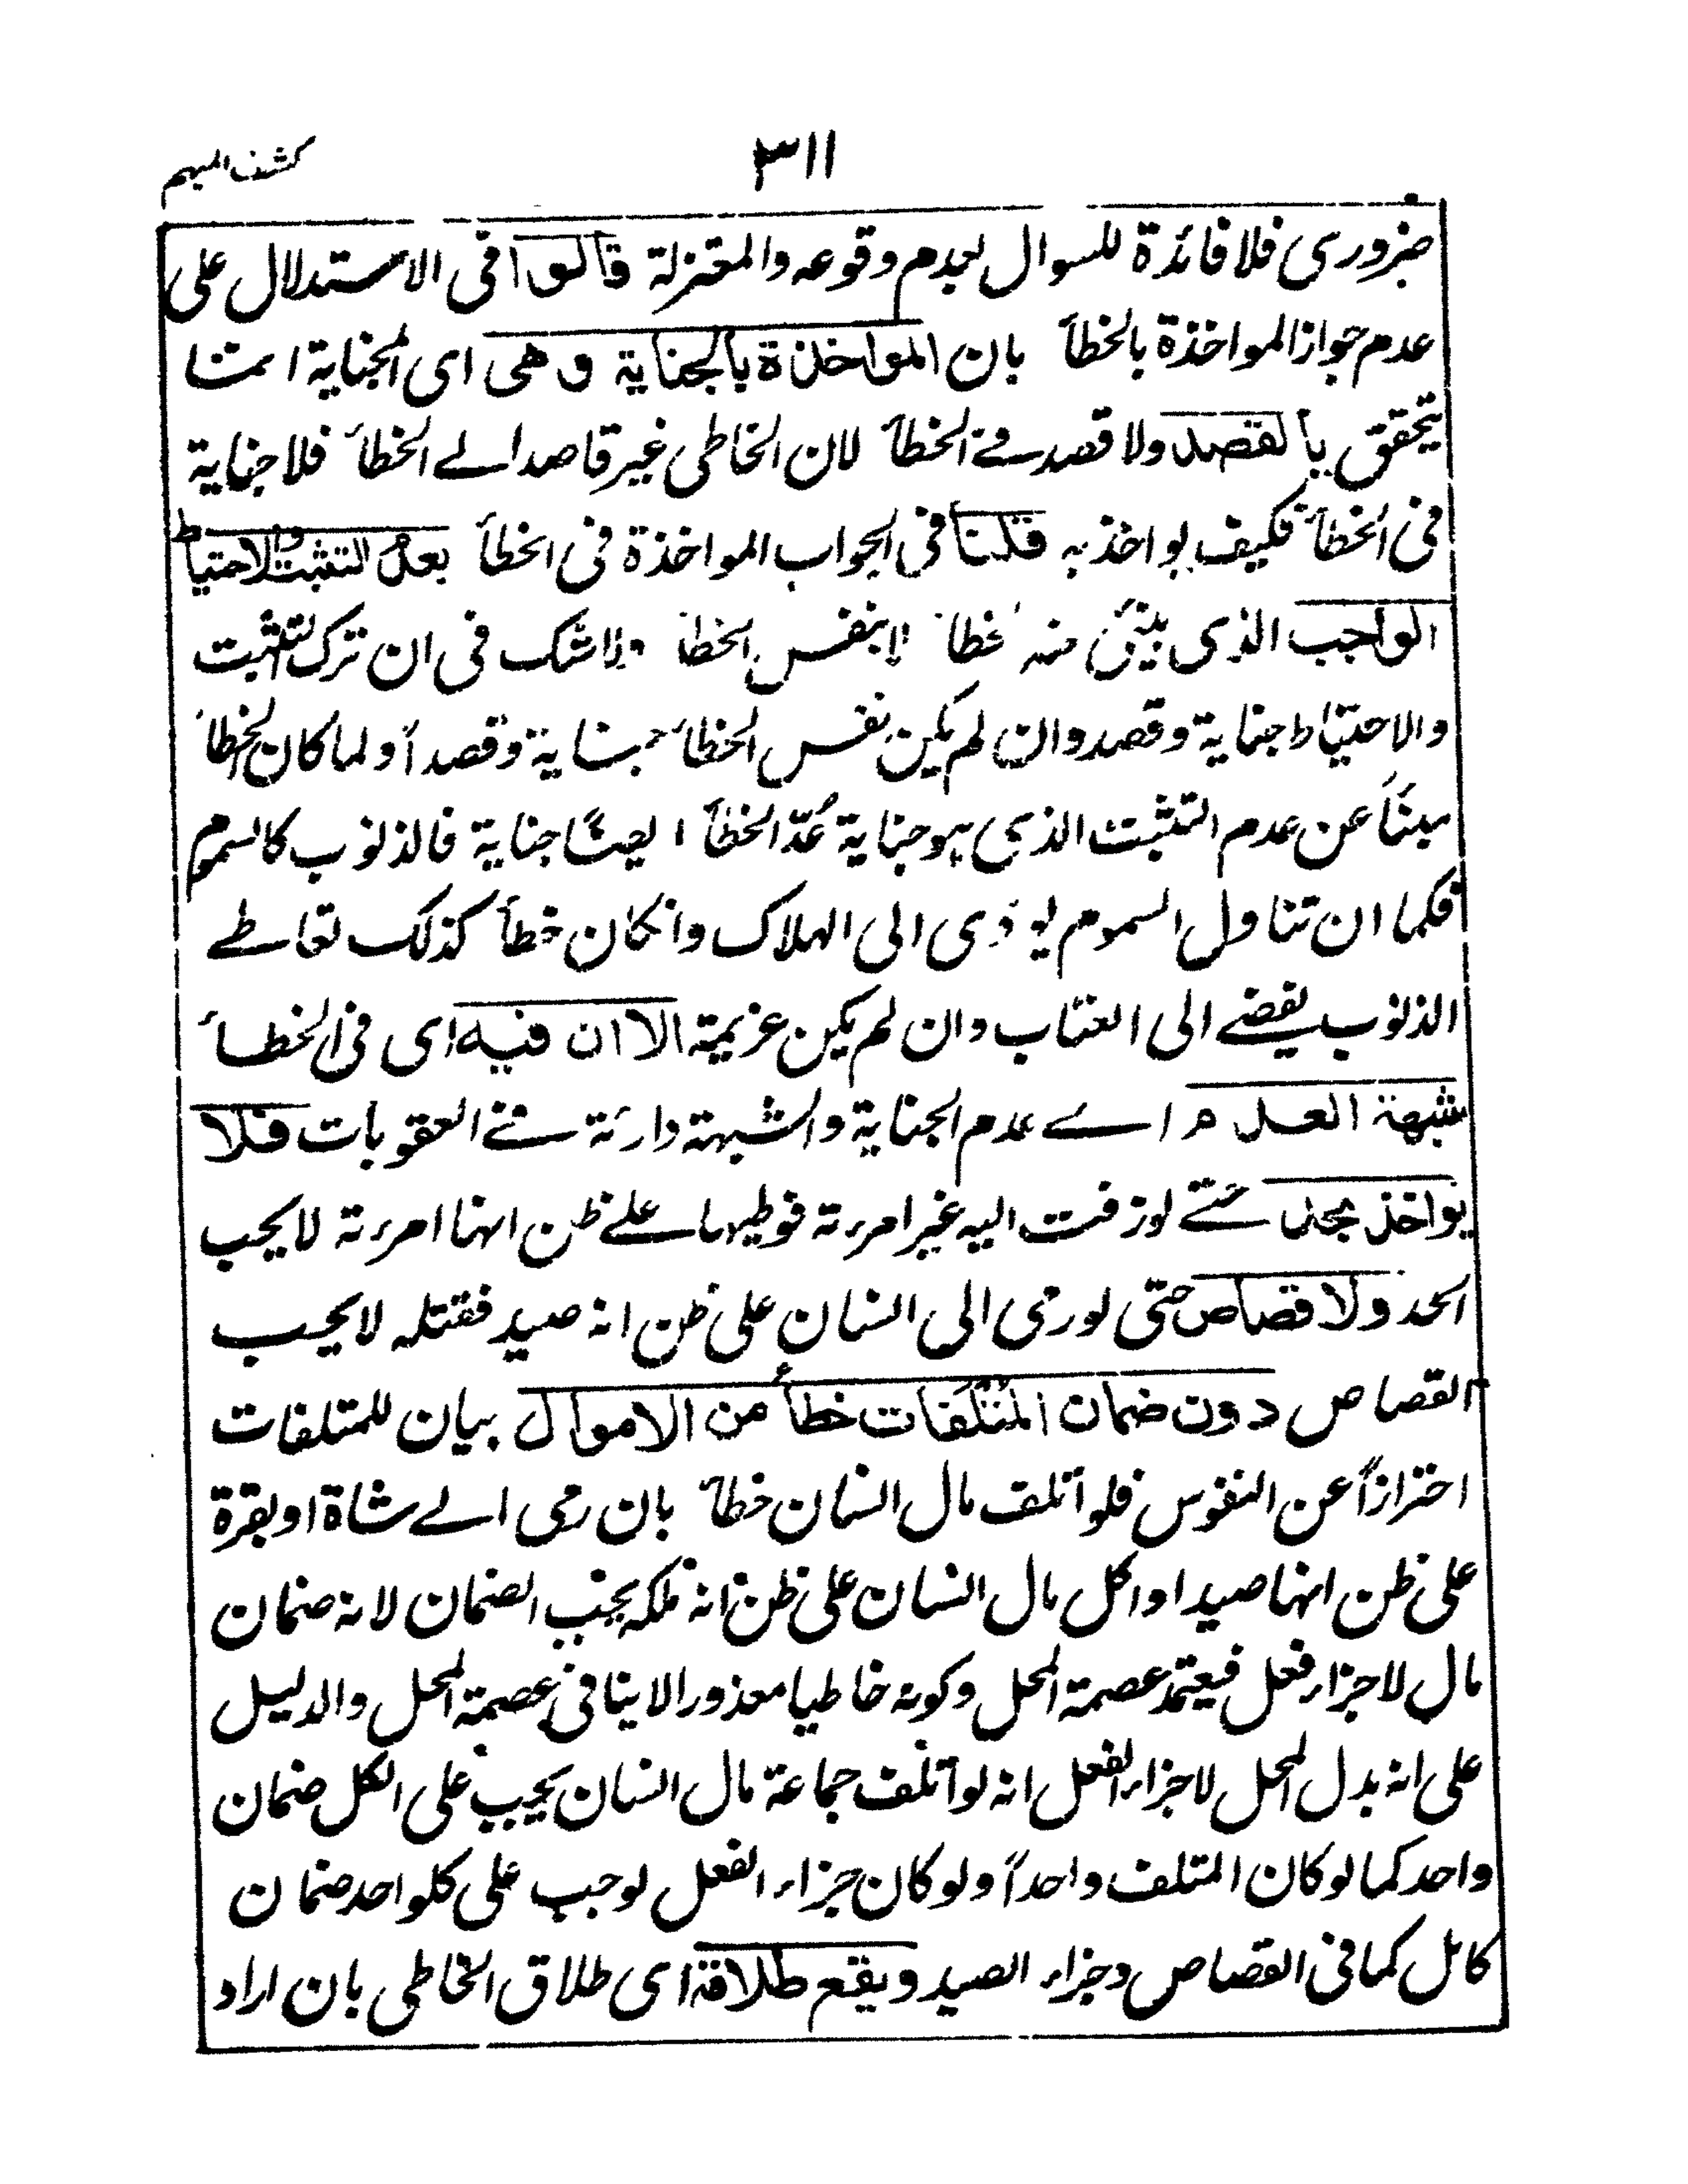 ٣١١
كشف المبهم
ضروري فلا فائدة للسوال لعدم وقوعه والمعتزلة قالوا في الاستدلال على
عدم جواز المواخذة بالخطأ بان المواخذة بالجناية وهي اى الجناية انما
يتحقق بالقصد ولا قصد في الخطأ لان الخاطى غير قاصد الے الخطأ فلا جناية
في الخطأ فكيف يواخذ به قلنا في الجواب المواخذة في الخطأ بعدم التثبت والاحتياط
الواجب الذى ينبئ منه خطأ لا بنفس الخطأ ولا شك في ان ترك التثبت
والاحتياط جناية وقصد وان لم يكن نفس الخطأ جناية وقصداً ولما كان الخطأ
مبنئاً عن عدم التثبت الذي هو جناية عُدّ الخطأ ايضًا جناية فالذنوب كالسموم
فكما ان تناول السموم يؤدى الى الهلاك وانكان خطأ كذلك تعاطے
الذنوب يفضے الى العقاب وان لم يكن عزيمة الا ان فيه اى في الخطأ
شبهة العدم اے عدم الجناية والشبهة دارئة فے العقوبات فلا
يواخذ بحد حتے لو زفت اليه غير امرءته فوطيها علے ظن انها امرءته لا يجب
الحد ولا قصاص حتى لو رمى الى انسان على ظن انه صيد فقتله لا يجب
القصاص دون ضمان المُتْلَفات خطأ من الاموال بيان للمتلفات
احترازاً عن النفوس فلو أتلف مال انسان خطأ بان رمى الے شاة او بقرة
على ظن انها صيد او اكل مال انسان على ظن انه ملكه يجب الضمان لانه ضمان
مال لا جزاء فعل فيعتمد عصمة المحل وكونه خاطيا معذورا لا ينافي عصمة المحل والدليل
على انه بدل المحل لا جزاء الفعل انه لو أتلف جماعة مال انسان يجب على الكل ضمان
واحد كما لو كان المتلف واحداً ولو كان جزاء الفعل لوجب على كلواحد ضمان
كامل كما في القصاص وجزاء الصيد ويقع طلاقه اى طلاق الخاطى بان اراد